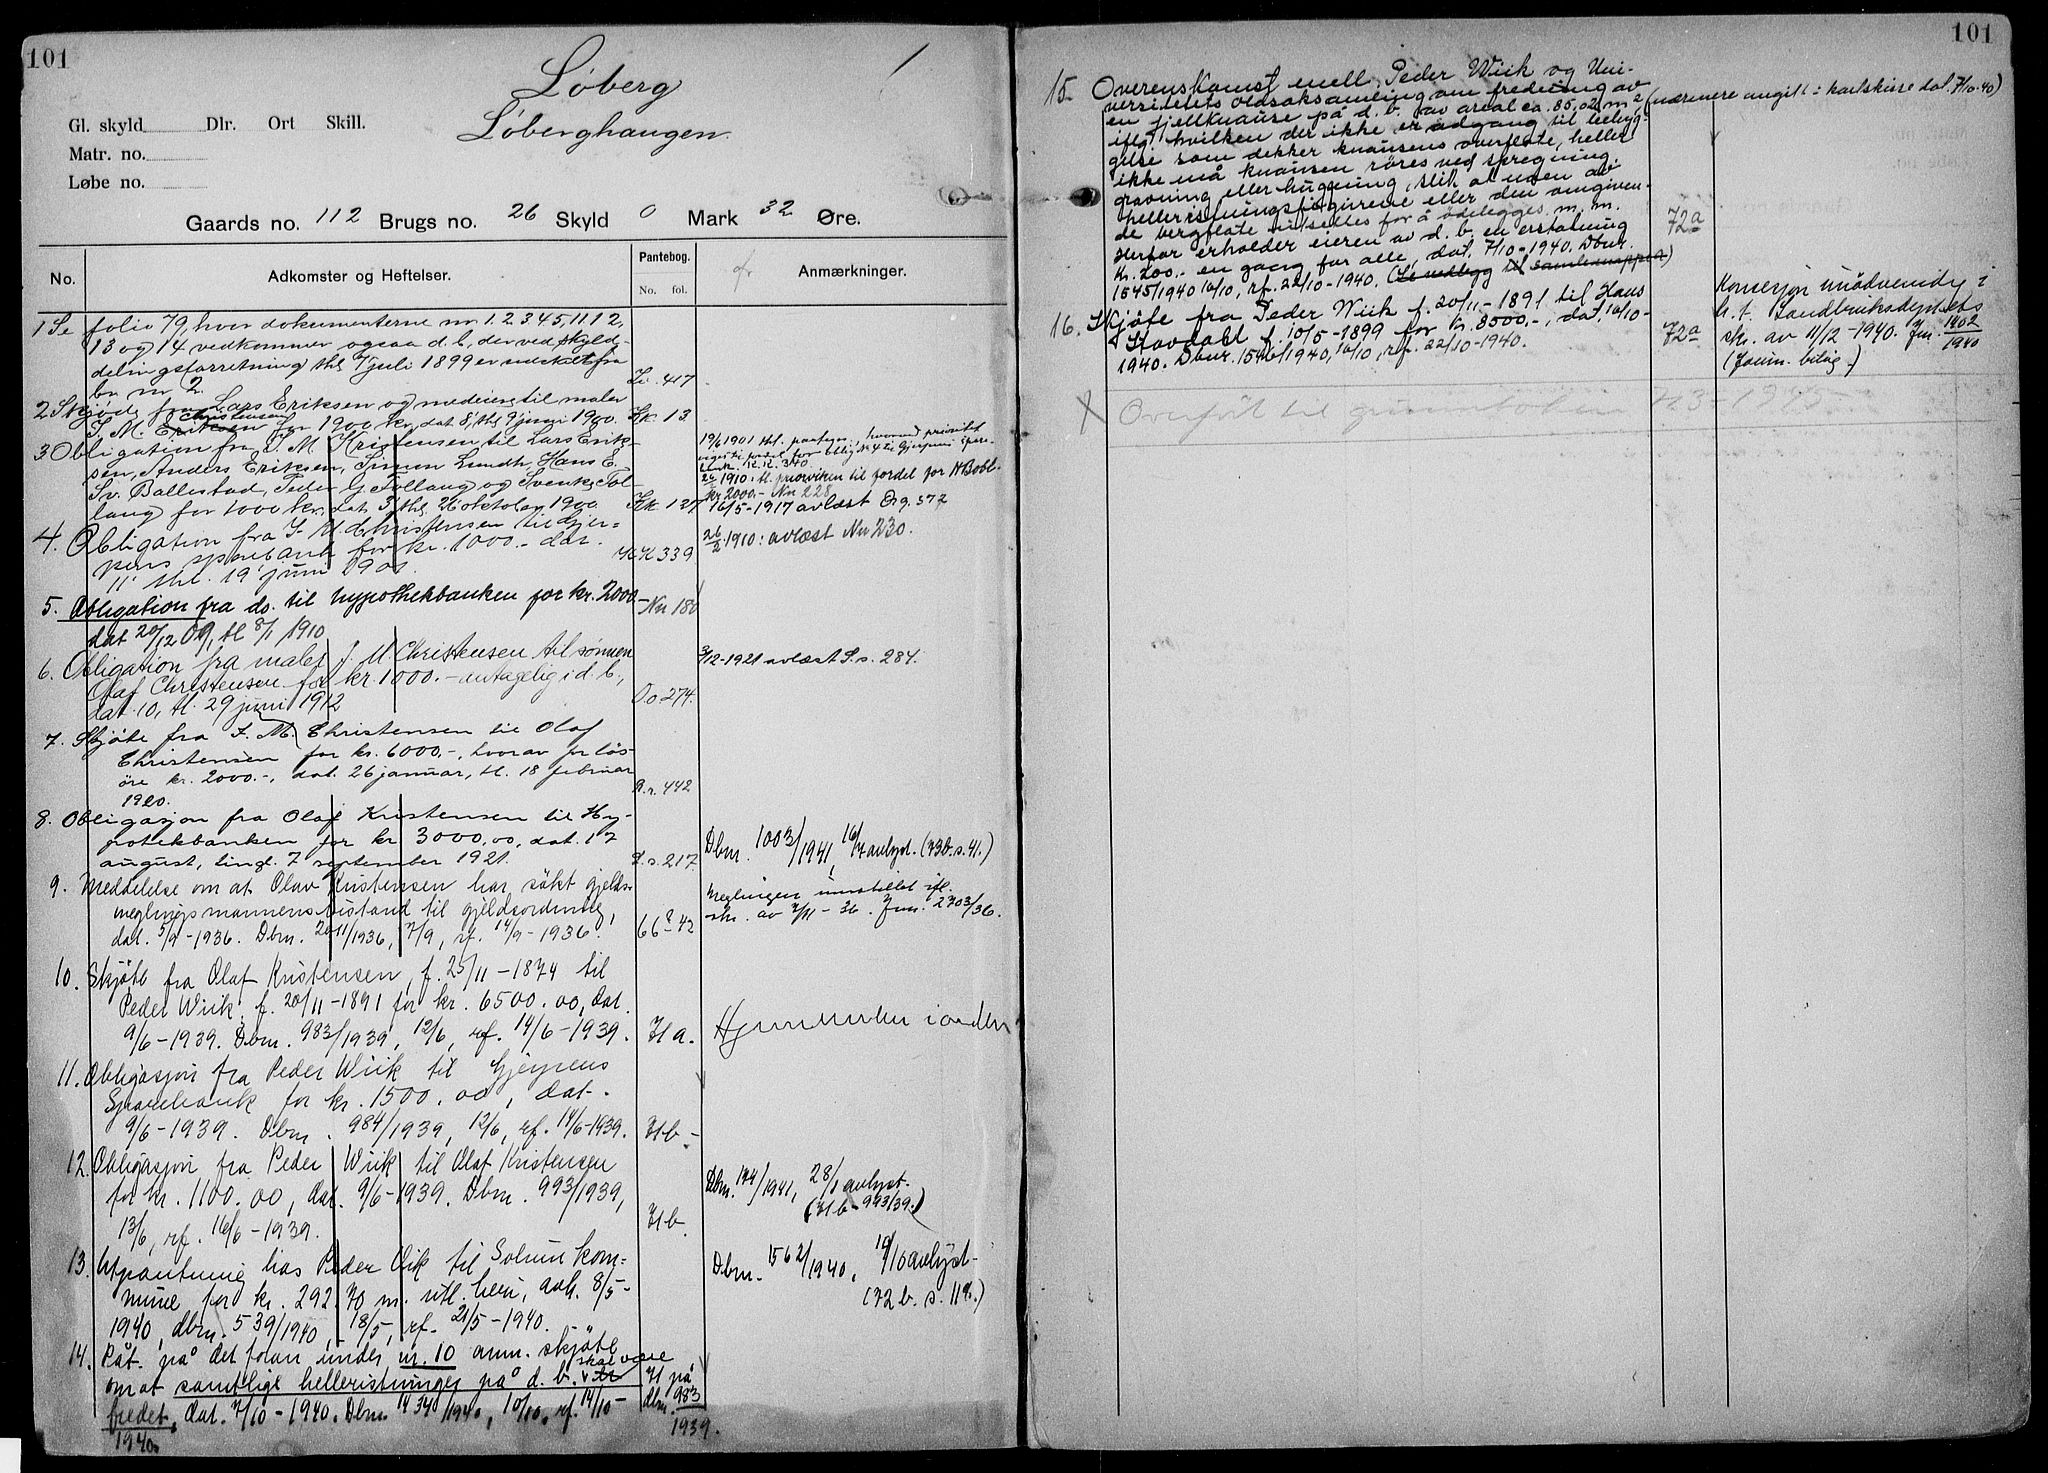 101
1
Løberg
Løberghaugen.
Gl. skyld Dlr. Ort Skill.
Matr. no.
Løbe no.
Gaards no. 112 Brugs no. 26 Skyld 0 Mark 32 Øre.
No. Adkomster og Heftelser. Pantebog. No. fol. Anmærkninger.
1 Se folio 79, hvor dokumenterne nr 1. 2 3 4 5, 11 12,
13 og 14 vedkommer ogsaa d. b., der ved skyld-
delingsforretning thl. 7 juli 1899 er udskilt fra
br. nr 2. 417
2 Skjøde fra Lars Eriksen og medeiere til maler
Christensen
J. M. Eriksen for 1900 kr, dat 8, thl 9 juni 1900. Kk. 13
3 Obligation fra J. M. Kristensen til Lars Erik-
sen, Anders Eriksen, Simon Lundh, Hans E.
Sv. Ballestad, Peder G. Follaug og Svenke Fol-
laug for 1000 kr, dat 3, thl. 26 oktober 1900 Kk 127
19/6 1901 thl. , hvorved prioritet
viges til fordel for oblig. No 4 til Gjerpens spare-
bank. 340
1910: tl. priorviken til fordel for H Bobl.
kr 2000.- Nn 228
16/5-1917 avlæst Q.q. 572
4. Obligation fra J. M. Christensen til Gjer-
pens sparebank for kr. 1000.- dat.
11 thl. 19 juni 1901. KK 339
26/2 1910: avlæst Nn 230.
5. Obligation fra ds. til hypothekbanken for kr. 2000.-
dat 20/12 09, tl 8/1 1910 Nn 180
6. Obligation fra maler J. M. Christensen til sønnen
Olaf Christensen for kr. 1000.- antagelig i d. b.,
dat. 10, tl. 29 juni 1912 Oo 274.
3/12-1921 avlæst S.s. 284.
7. Skjøte fra J. M. Christensen til Olaf
Christensen for kr. 6000.-, hvorav for løs-
øre kr. 2000.-, dat. 26 januar, tl. 18 februar
1920. R.r. 442
8. Obligasjon fra Olaf Kristensen til Hy-
potekbanken for kr 3000,00, dat. 17
august, tingl. 7 september 1921. S.s 217.
Dbnr. 1003/1941, 16/7 avlyst. (73b. s. 41.)
9. Meddelelse om at Olav Kristensen har søkt gjelds-
meglingsmannens bistand til gjeldsordning,
dat. 5/9-1936. Dbnr. 2011/1936, 7/9, rf. 14/9-1936. 66 42
Meglingen innstillet ifl.
skr. av 7/11-36. Jnr. 2703/36.
10. Skjøte fra Olaf Kristensen, f. 25/11-1874 til
Peder Wiik, f. 20/11-1891 for kr. 6500.00, dat.
9/6-1939. Dbnr. 983/1939, 12/6, rf. 14/6-1939. 71 a.
Hjemmelen i orden
11. Obligasjon fra Peder Wiik til Gjerpens
Sparebank for kr. 1500.00, dat.
9/6-1939. Dbnr. 984/1939, 12/6, rf. 14/6-1939. 71 b-
12. Obligasjon fra Peder Wiik til Olaf Kristensen
for kr. 1100.00, dat. 9/6-1939. Dbnr. 993/1939,
13/6, rf. 16/6-1939. 71 b-
Dbnr. 144/1941, 28/1 avlyst.
(71 b - 993/39.)
13. Utpantning hos Peder Vik til Solum kom-
mune for kr. 292.70 m. utl. herv., avh. 8/5-
1940, dbnr. 539/1940, 18/5, rf. 21/5-1940.
Dbnr. 1562/1940, 10 avlyst-
(72 b. s. 119.)
14. Påt. på det foran under nr. 10 anm. skjøte
skal være
om at samtlige helleristninger på d. b.
fredet, dat. 7/10-1940. Dbnr. 1434/1940, 10/10, rf. 14/10-
1940. 71 på
dbnr. 983
1939.
101
15. Overenskomst mell. Peder Wiik og Uni-
versitetets oldsaksamling om fredning av
en fjellknause på d. b. av areal ca. 85,02 m2 (nærmere angitt i kartskisse dat. 7/10-40)
iflg. hvilken der ikke er adgang til bebyg-
gelse som dekker knausens overflate, heller
ikke må knausen røres ved sprengning,
gravning eller hugning, slik at noen av
helleristningsfigurene eller den omgiven-
de bergflate utsettes for å ødelegges m. m.
Herfor erholder eieren av d. b. en erstatning
kr. 200.- en gang for alle, dat. 7/10-1940. Dbnr.
1545/1940 16/10, rf. 22/10-1940. (Se vedlegg til samlemappen) 72a
16. Skjøte fra Peder Wiik f. 20/11-1891 til Hans
Stavdahl f. 10/5-1899 for kr. 8500.-, dat. 16/10-
1940. Dbnr. 1546/1940, 16/10, rf. 22/10-1940. 72a
Konsesjon unødvendig i
h. t. Landbruksdeptets
skr. av 11/12-1940. Jnr. 1402
1940
(Journ. bilag.)
Overført til grunnboken